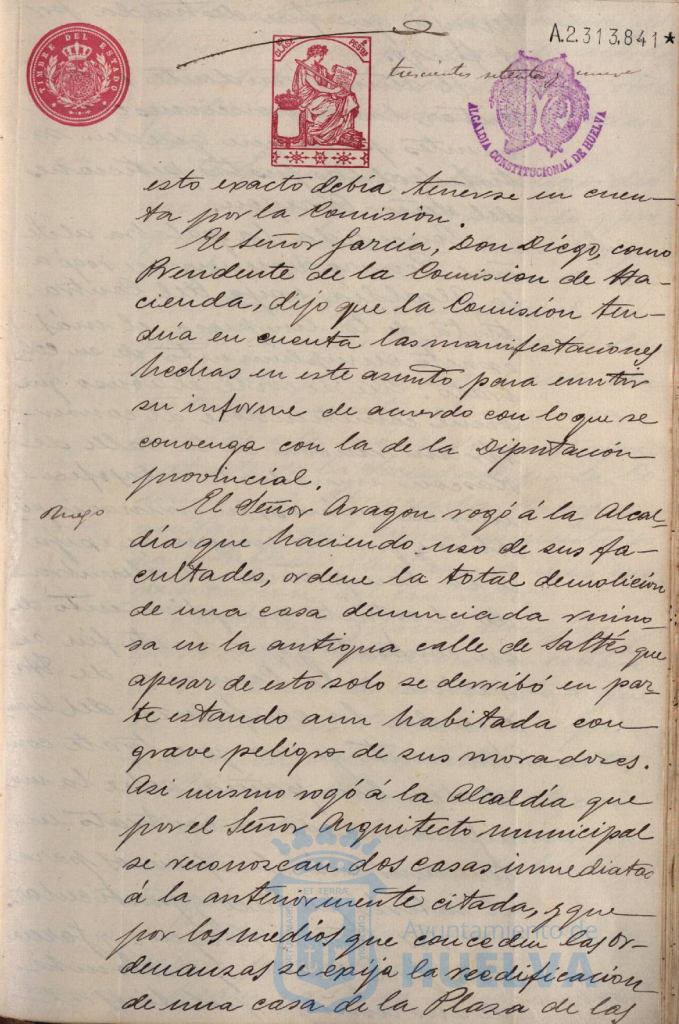 TIMBRE DEL ESTADO
CLASE
PESETAS
A.2.313.841*
trescientos setenta y nueve
ALCALDIA CONSTITUCIONAL DE HUELVA
esto exacto debía tenerse en cuen-
ta por la Comisión.
El Señor García, Don Diego, como
Presidente de la Comision de Ha-
cienda, dijo que la Comisión ten-
dría en cuenta las manifestaciones
hechas en este asunto para emitir
su informe de acuerdo con lo que se
convenga con la de la Diputación
provincial.
Ruego
El Señor Aragon rogó á la Alcal-
día que haciendo uso de sus fa-
cultades, ordene la total demolición
de una casa denunciada ruino-
sa en la antigua calle de Saltés que
apesar de esto solo se derribó en par-
te estando aun habitada con
grave peligro de sus moradores.
Asi mismo rogó á la Alcaldía que
por el Señor Arquitecto municipal
se reconozcan dos casas inmediatas
á la anteriormente citada, y que
por los medios que conceden las or-
denanzas se exija la reedificación
de una casa de la Plaza de las
Ayuntamiento de
HUELVA